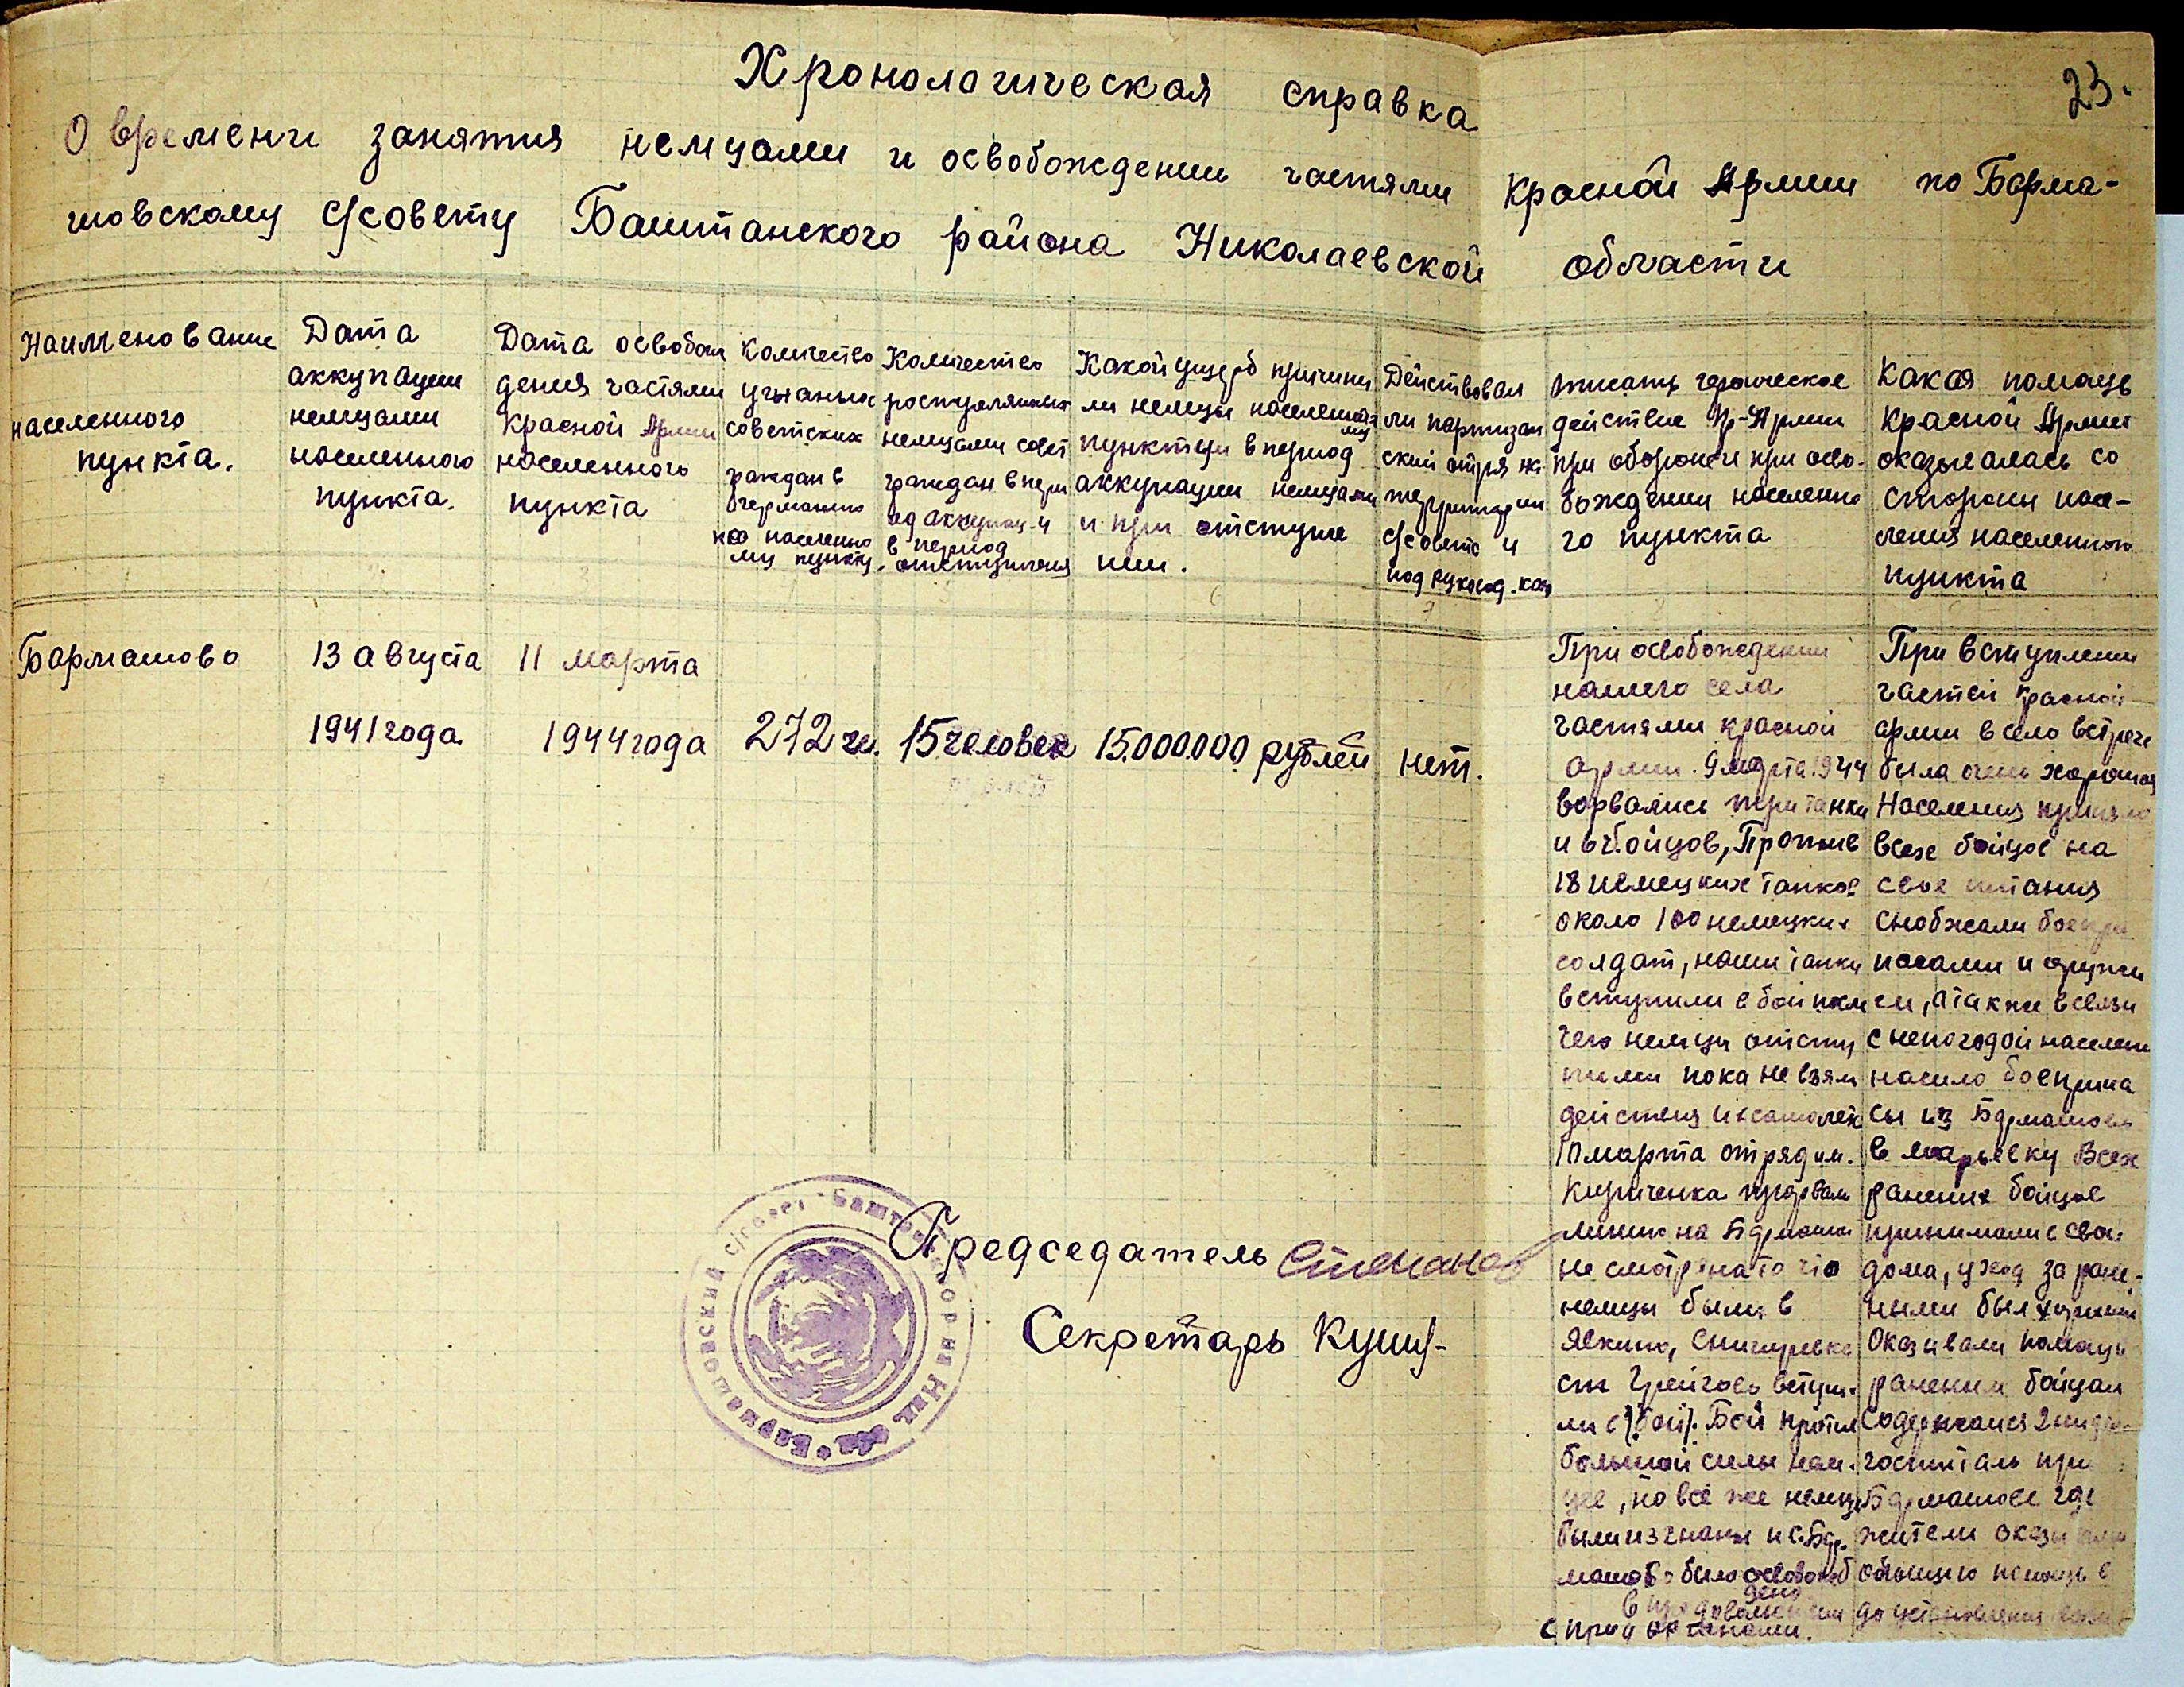 23.
Хронологическая справка
О времени занятия немцами и освобождении частями Красной Армии по Барма-
шовскому с/совету Баштанского района Николаевской области
Наименование
населенного
пункта.
Дата
аккупации
немцами
населенного
пункта.
Дата освобож
дения частями
Красной Армии
населенного
пункта
Количество
угнаных
советских
граждан в
Германию
по населенно
му пункту.
Количество
росстрелянных
немцами совет
граждан в пери
од аккупац. и
в период
отступления
Какой ущерб причини
ли немцы населенно
му
пункту в период
аккупации немцами
и при отступле
нии.
Действовал
ли партизан
ский отряд на
территории
с/совета и
под руковод. кого
описать героическое
действие Кр-Армии
при обороне и при осво-
бождении населенно
го пункта
Какая помощь
Красной Армии
оказывалась со
стороны насе-
ления населенного
пункта
Бармашово
13 августа
1941 года
11 марта
1944 года
272 че.
15 человек
15.000.000 рублей
нет.
При освобождении
нашего села
частями красной
армии. 9 марта 1944
ворвались три танка
и 6 ч. бойцов, Против
18 немецких танков
около 100 немецких
солдат, наши танки
вступили в бой после
чего немцы отсту
пили пока не взяли
действия их самолет
10 марта отряд им.
Кириченка прорвали
линию на Бармашово
не смотря на то что
немцы были в
Явкино, Снигиревке
ст. Грейгово вступи-
ли в бой. Бой против
большой силы нем.
цев, но всё же немцы
были изгнаны и с. Бар.
машово было освобож
дено
При вступлении
частей красной
армии в село встреча
была очень хорошая
Населения приняло
всех бойцов на
свое питания
снобжали боепри
пасами и оружи
ем, а так же в связи
с непогодой населени
носило боеприпа
сы из Бармашово
в Марьевку Всех
раненых бойцов
принимали в свои
дома, уход за ране-
ными был хороший
Оказывали помощь
раненым бойцам
Содержался
госпиталь при
Бармашове где
жители оказывали
помощь в
Председатель Степанов
Секретарь Кушч